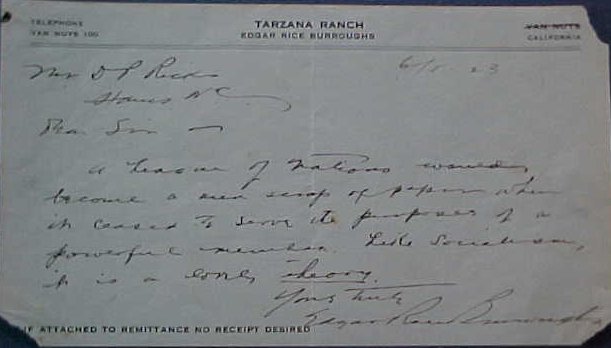 TELEPHONE
VAN NUYS 100
TARZANA RANCH
EDGAR RICE BURROUGHS
VAN NUYS
CALIFORNIA
Mr D P Ricks
N C.
23
Dear Sir —
A League of Nations would
become a mere scrap of paper when
it ceased to serve the purposes of a
powerful member. Like Socialism,
it is a lovely theory.
Yours truly
Edgar Rice Burroughs
IF ATTACHED TO REMITTANCE NO RECEIPT DESIRED